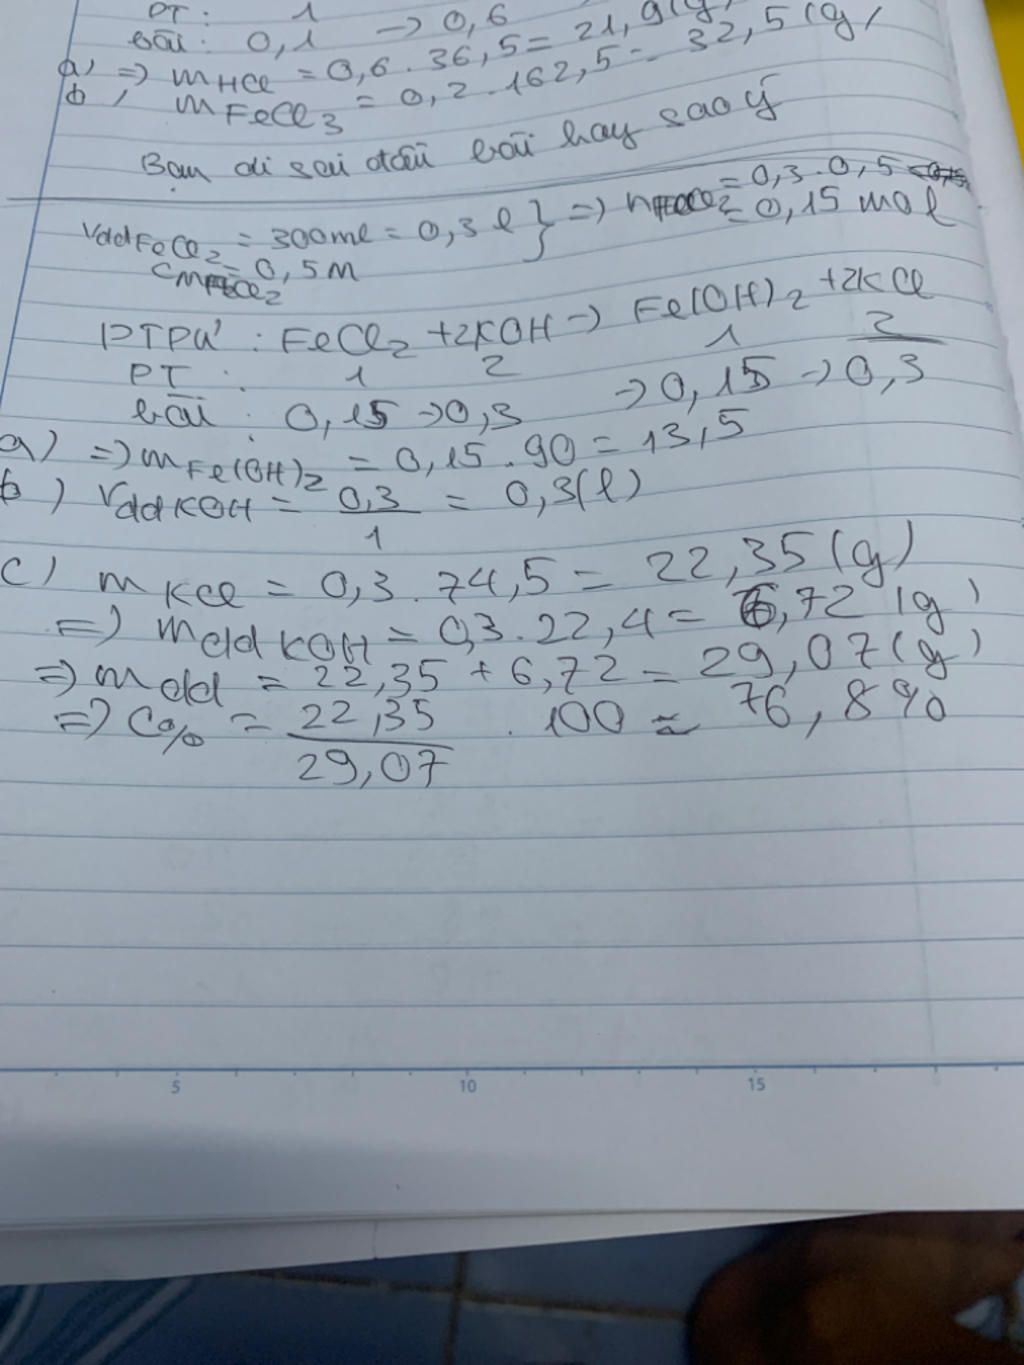 PT: 1
bài: 0,1 → 0,6
a, => mHCl = 0,6 . 36,5 = 21,9(g)
b, mFeCl3 = 0,2 . 162,5 = 32,5 (g)
Bạn di sai đâu bài hay sao ý
VddFeCl2 = 300ml = 0,3 l } => nFeCl2 = 0,3 . 0,5
CMFeCl2 = 0,5M = 0,15 mol
PTPƯ : FeCl2 + 2KOH → Fe(OH)2 + 2KCl
PT : 1 2 1 2
bài : 0,15 → 0,3 → 0,15 → 0,3
a) => mFe(OH)2 = 0,15 . 90 = 13,5
b) VddKOH = 0,3/1 = 0,3(l)
c) mKCl = 0,3 . 74,5 = 22,35 (g)
=> mddKOH = 0,3 . 22,4 = 6,72 (g)
=> mdd = 22,35 + 6,72 = 29,07 (g)
=> C% = 22,35/29,07 . 100 ≈ 76,8%
5 10 15